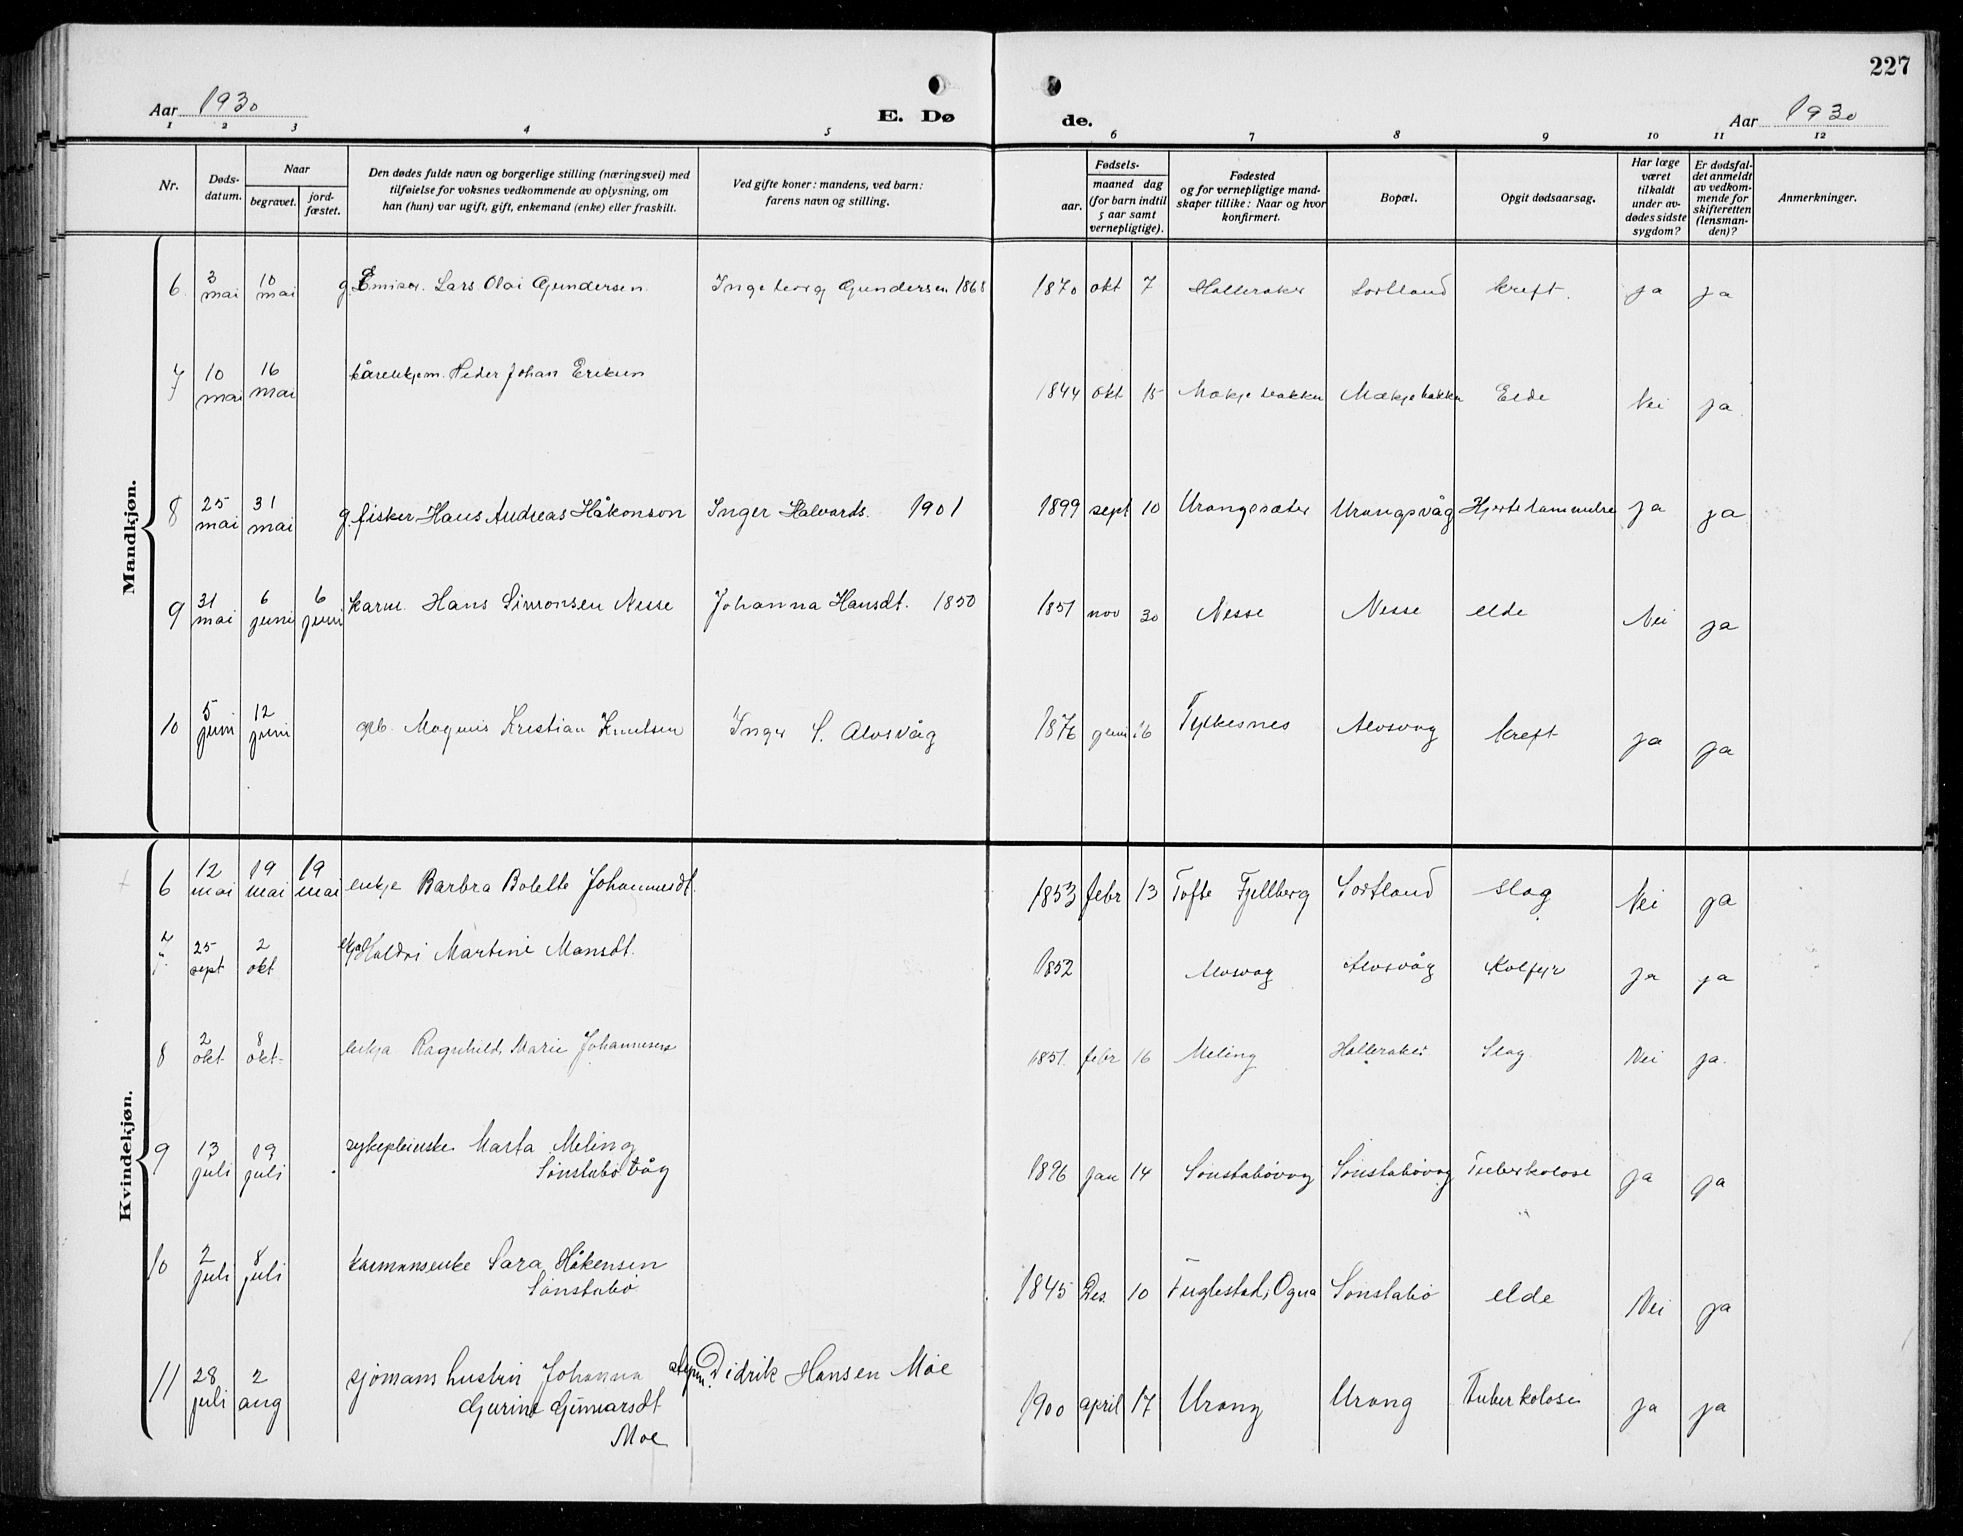 227
Aar 1930
E. Dø
de.
Aar 1930
1 2 3 4 5 6 7 8 9 10 11 12
Nr.
Døds-
datum.
Naar
begravet.
jord-
fæstet.
Den dødes fulde navn og borgerlige stilling (næringsvei) med
tilføielse for voksnes vedkommende av oplysning, om
han (hun) var ugift, gift, enkemand (enke) eller fraskilt.
Ved gifte koner: mandens, ved barn:
farens navn og stilling.
Fødsels-
aar.
maaned dag
(for barn indtil
5 aar samt
vernepligtige).
Fødested
og for vernepligtige mand-
skaper tillike: Naar og hvor
konfirmert.
Bopæl.
Opgit dødsaarsag.
Har læge
været
tilkaldt
under av-
dødes sidste
sygdom?
Er dødsfal-
det anmeldt
av vedkom-
mende for
skifteretten
(lensman-
den)?
Anmerkninger.
Mandkjøn.
6 3 mai 10 mai g Emisær. Lars Olai Gundersen Ingeborg Gundersen 1868 1870 okt 7 Halleraker Sortland kreft. ja ja
7 10 mai 16 mai Peder Johan Eriksen 1844 okt 15 Mækjebakken Mækjebakken Elde Nei ja
8 25 mai 31 mai g fisker Hans Andreas Håkonson Inger Halvards. 1901 1899 sept 10 Urangsæter Urangsvåg Hjertelammelse ja ja
9 31 mai 6 juni 6 juni Hans Simonsen Nesse Johanna Hansdt. 1850 1851 nov 30 Nesse Nesse elde Nei ja
10 5 juni 12 juni Magnus Kristian Knutsen Inger S. Alvsvåg 1876 juni 26 Fylkesnes Alvsvåg kreft ja ja
Kvindekjøn.
6 12 mai 19 mai 19 mai enkje Barbra Bolette Johannesdt. 1853 febr 13 Tofte Fjellberg Sortland slag Nei ja
7 25 sept 2 okt Haldri Martine Monsdt. 1852 Alvsvåg Alvsvåg Kolfyr ja ja
8 2 okt 8 okt enkja Ragnhild Marie Johannesen 1851 febr 16 Meling Halleraker Slag Nei ja.
9 13 juli 19 juli sykepleiuske Marta Meling
Sønstabøvåg 1896 jan 14 Sønstabøvåg Sønstabøvåg Tuberkolose ja ja
10 2 juli 8 juli karmansenke Sara Håkensen
Sønstabø 1845 Des. 10 Fuglestad, Ogna Sønstabø elde Nei ja
11 28 juli 2 aug sjømans hustru Johanna Didrik Hansen Moe
Gurine Gunnarsdt
Moe 1900 april 17 Urang Urang Tuberkolose ja ja